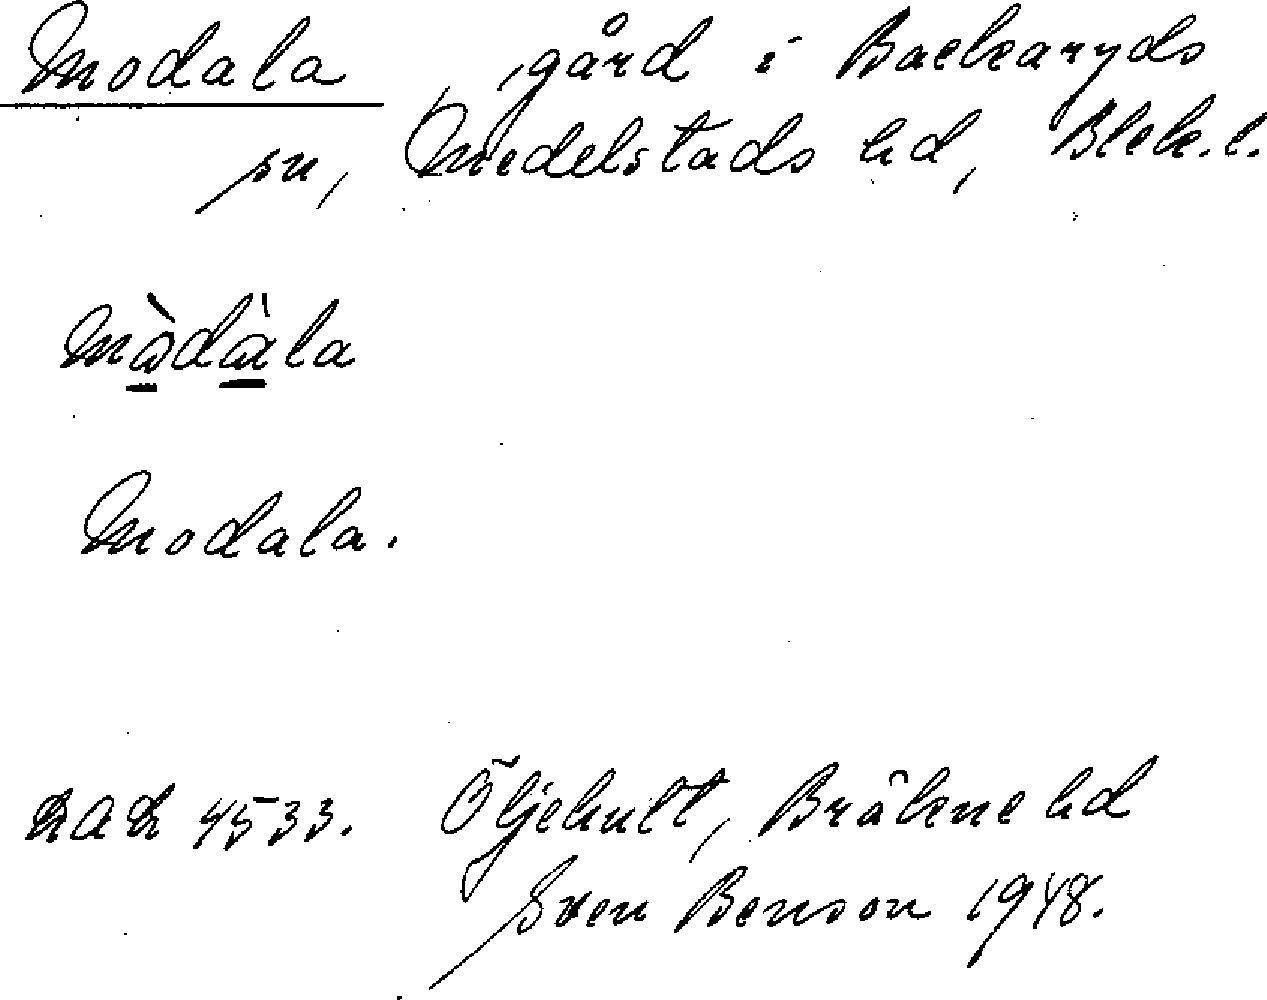 Modala, gård i Backaryds
sn, Medelstads hd, Blek.l.
Mòdàla
Modala.
4533. Öljehult, Bräkne hd
Sven Benson 1948.